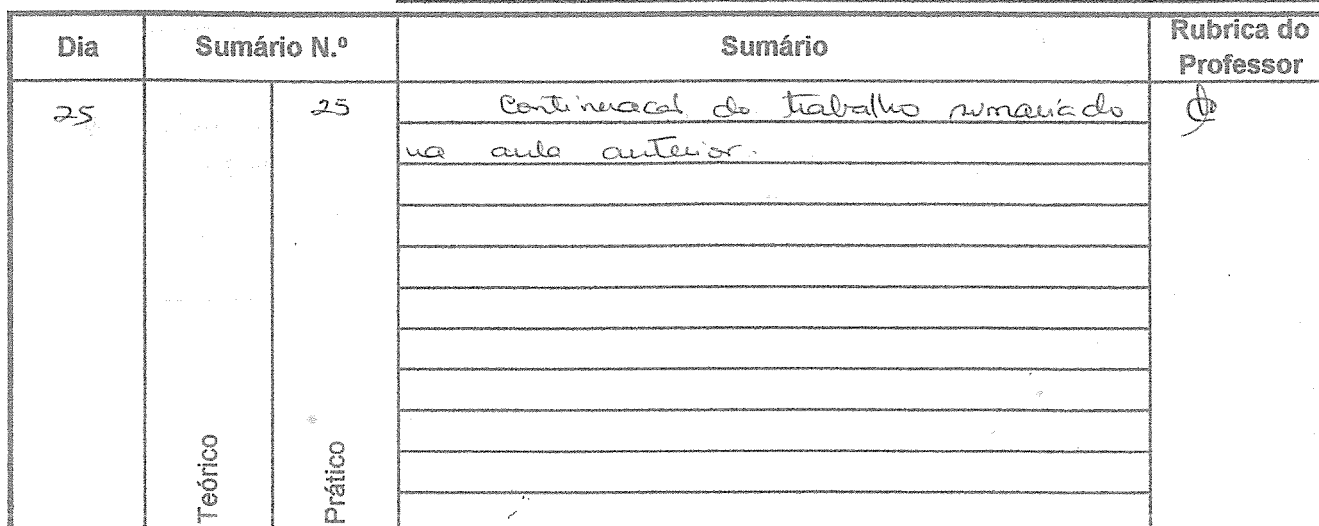 Dia Sumário N.º Sumário Rubrica do Professor
25 25 Continuação do trabalho sumariado
na aula anterior.
Teórico Prático